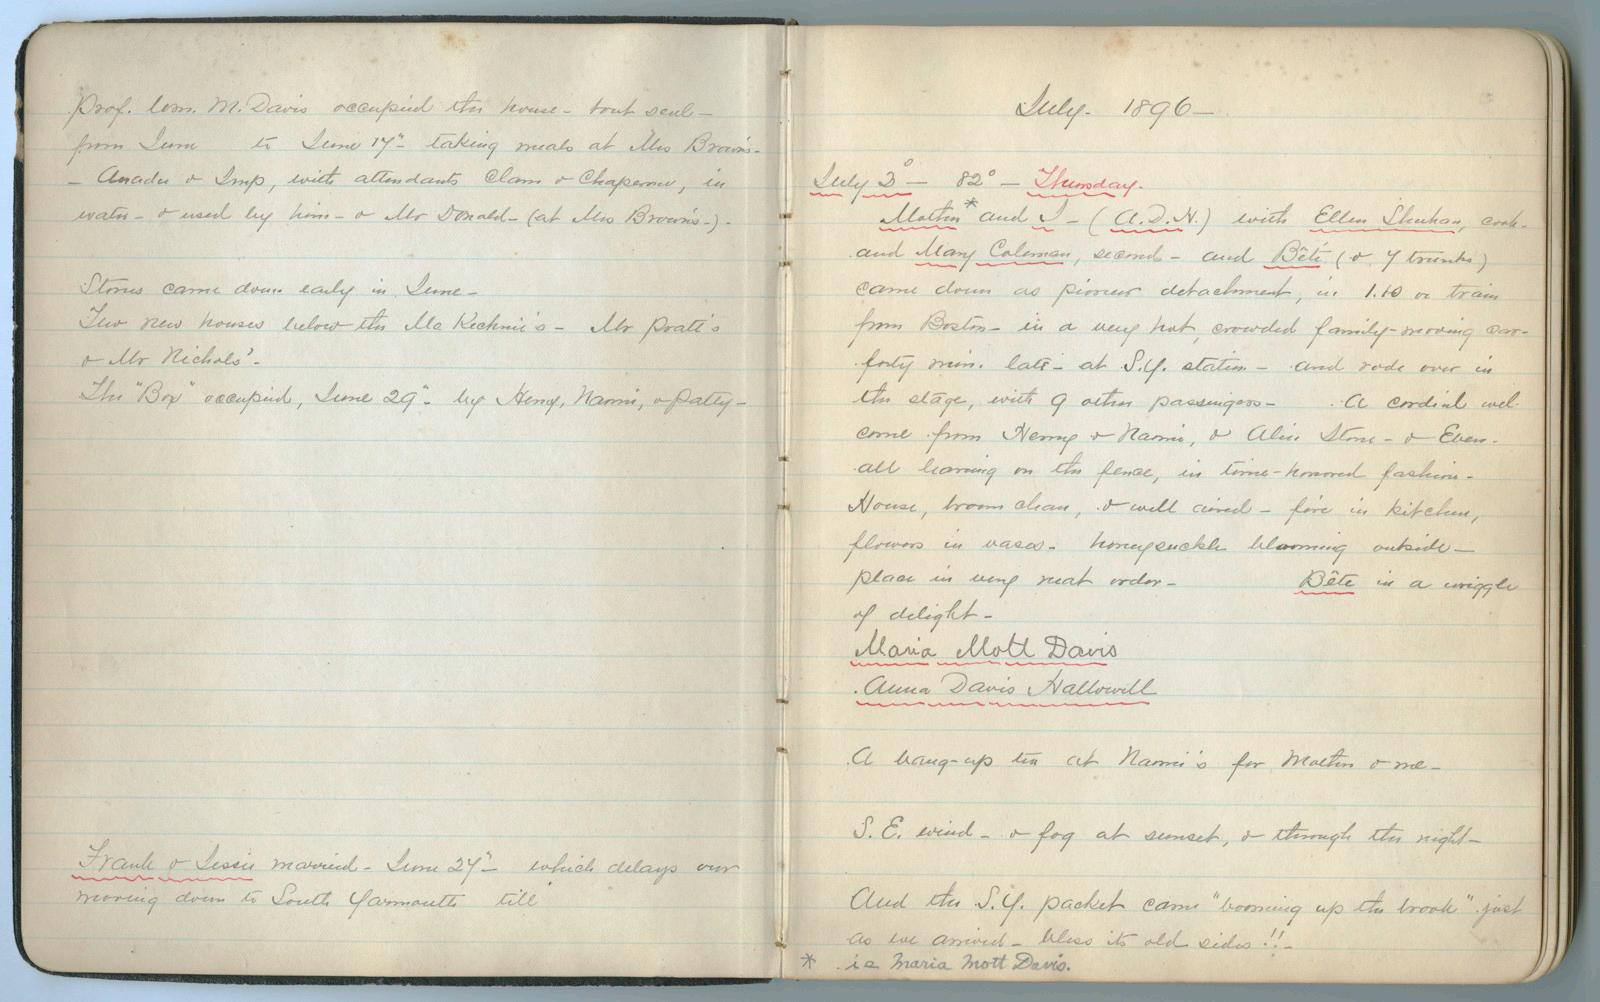 Prof. Wm. M. Davis occupied the house - tout seul -
from June to June 17" - taking meals at Mrs Brown's -
- & Imp, with attendants Clam & Chaperone, in
water - & used by him - & Mr Donald - (at Mrs Brown's -) -
Stores came down early in June -
Two new houses below the McKechnie's - Mr Pratt's
& Mr Nichols' -
The "Box" occupied, June 29" - by Henry, Nannie, & Patty -
Frank & Jessie married - June 27" - which delays our
moving down to South Yarmouth till
July - 1896 -
July 3° - 82° - Thursday.
Mother* and I - (A.D.H.) with Ellen Shehan, cook -
and Mary Coleman, second - and Bête (& 7 trunks)
came down as pioneer detachment, in 1.10 train
from Boston - in a very hot, crowded family-moving car -
forty min. late - at S.Y. station - and rode over in
the stage, with 9 other passengers - A cordial wel-
come from Henry & Nannie, & Alice Stone - & Eben -
all leaning on the fence, in time-honored fashion -
House, broom clean, & well aired - fire in kitchen,
flowers in vases - honeysuckle blooming outside -
place in very neat order - Bête in a wriggle
of delight -
Maria Mott Davis
Anna Davis Hallowell
A bang-up tea at Nannie's for Mother & me -
S.E. wind - & fog at sunset, & through the night -
And the S.Y. packet came "booming up the brook" just
as we arrived - bless its old sides!! -
* ie Maria Mott Davis.